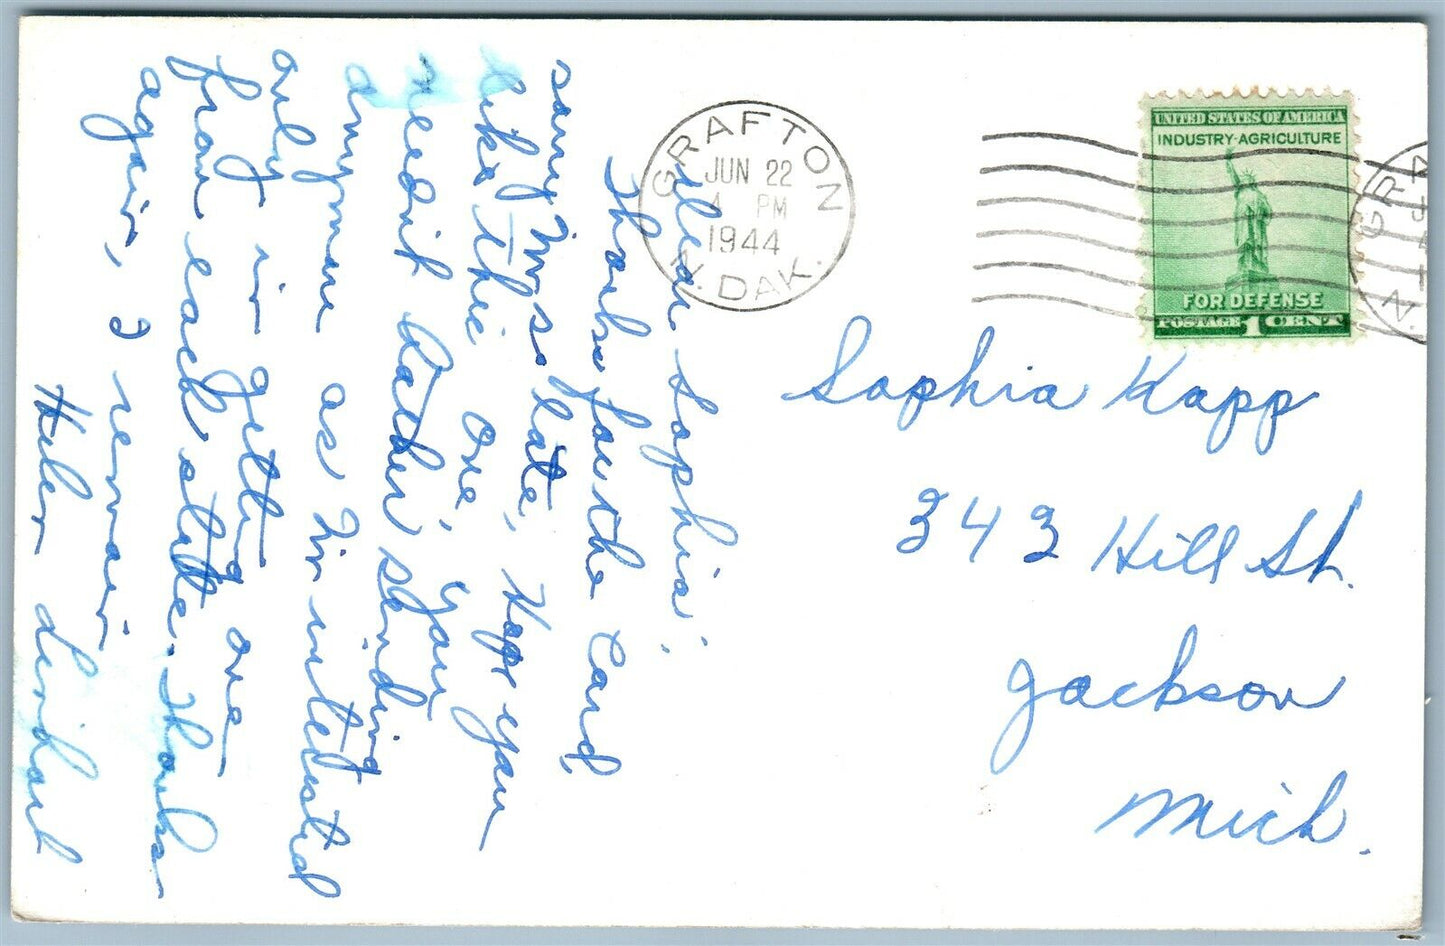 Dear Sophia;
Thanks for the Card,
sorry I'm so late, Hope you
like this one, you
needn't bother sending
anymore as I'm interested
only in getting one
from each state. Thanks
again, I remain
Helen
GRAFTON
JUN 22
4 PM
1944
N. DAK.
UNITED STATES OF AMERICA
INDUSTRY-AGRICULTURE
FOR DEFENSE
POSTAGE 1 CENT
GR
N.
Sophia Kapp
342 Hill St.
Jackson
Mich.